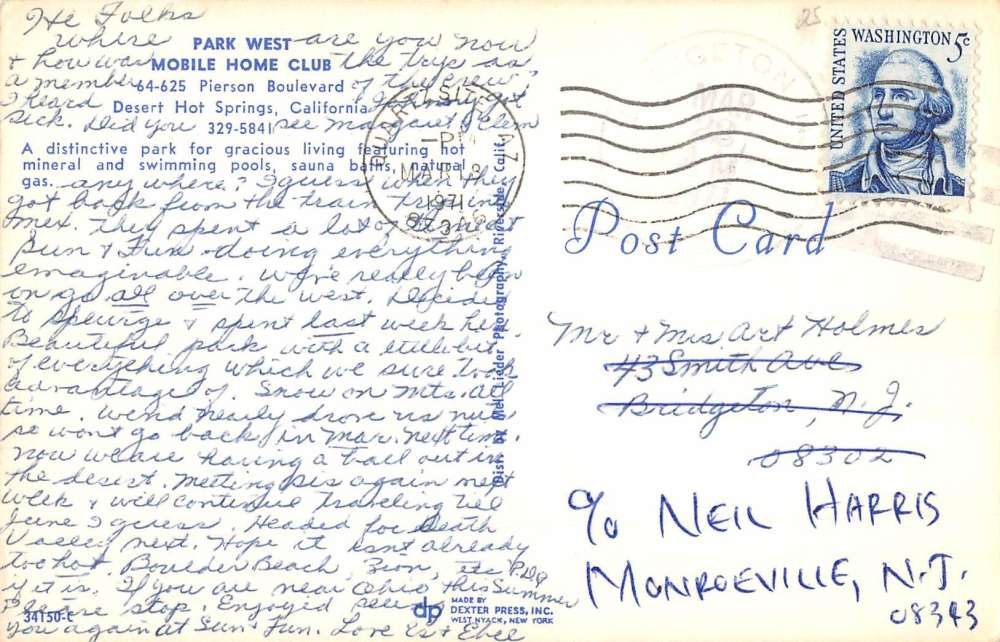 Hi Folks
Where are you now
+ how was the trip as
a member of the crew?
I heard Johnny got
sick. Did you see Margaret + Clem
any where? I guess when they
got back from the train trip in
Mex. They spent a lot of time at
Sun + Fun doing everything
emaginable. We've really been
on go all over the west. Decided
to spelurge + spent last week here.
Beautiful park with a little bit
of everything which we sure took
advantage of. Snow on Mts. all
time. Wind nearly drove us nuts
so won't go back in Mar. next time.
Now we are having a ball out in
the desert. Meeting Sis again next
week + will continue traveling till
June I guess. Headed for Death
Valley next. Hope it isn't already
too hot. Boulder Beach, Zion, etc P.D.Q
if it is. If you are near Ohio this Summer
Please stop. Enjoyed seeing
you again at Sun + Fun. Love Es + Ebee
PARK WEST
MOBILE HOME CLUB
64-625 Pierson Boulevard
Desert Hot Springs, California
329-5841
A distinctive park for gracious living featuring hot
mineral and swimming pools, sauna baths, natural
gas.
34150-C
dp MADE BY
DEXTER PRESS, INC.
WEST NYACK, NEW YORK
Dist. by Mel Lieder Photography, Riverside, Calif.
QUARTZSITE, AZ
PM
MAR 8
1971
85346
25
UNITED STATES
WASHINGTON 5c
Post Card
Mr + Mrs. Art Holmes
43 Smith Ave
Bridgeton, N. J.
08302
c/o NEIL HARRIS
MONROEVILLE, N.J.
08343